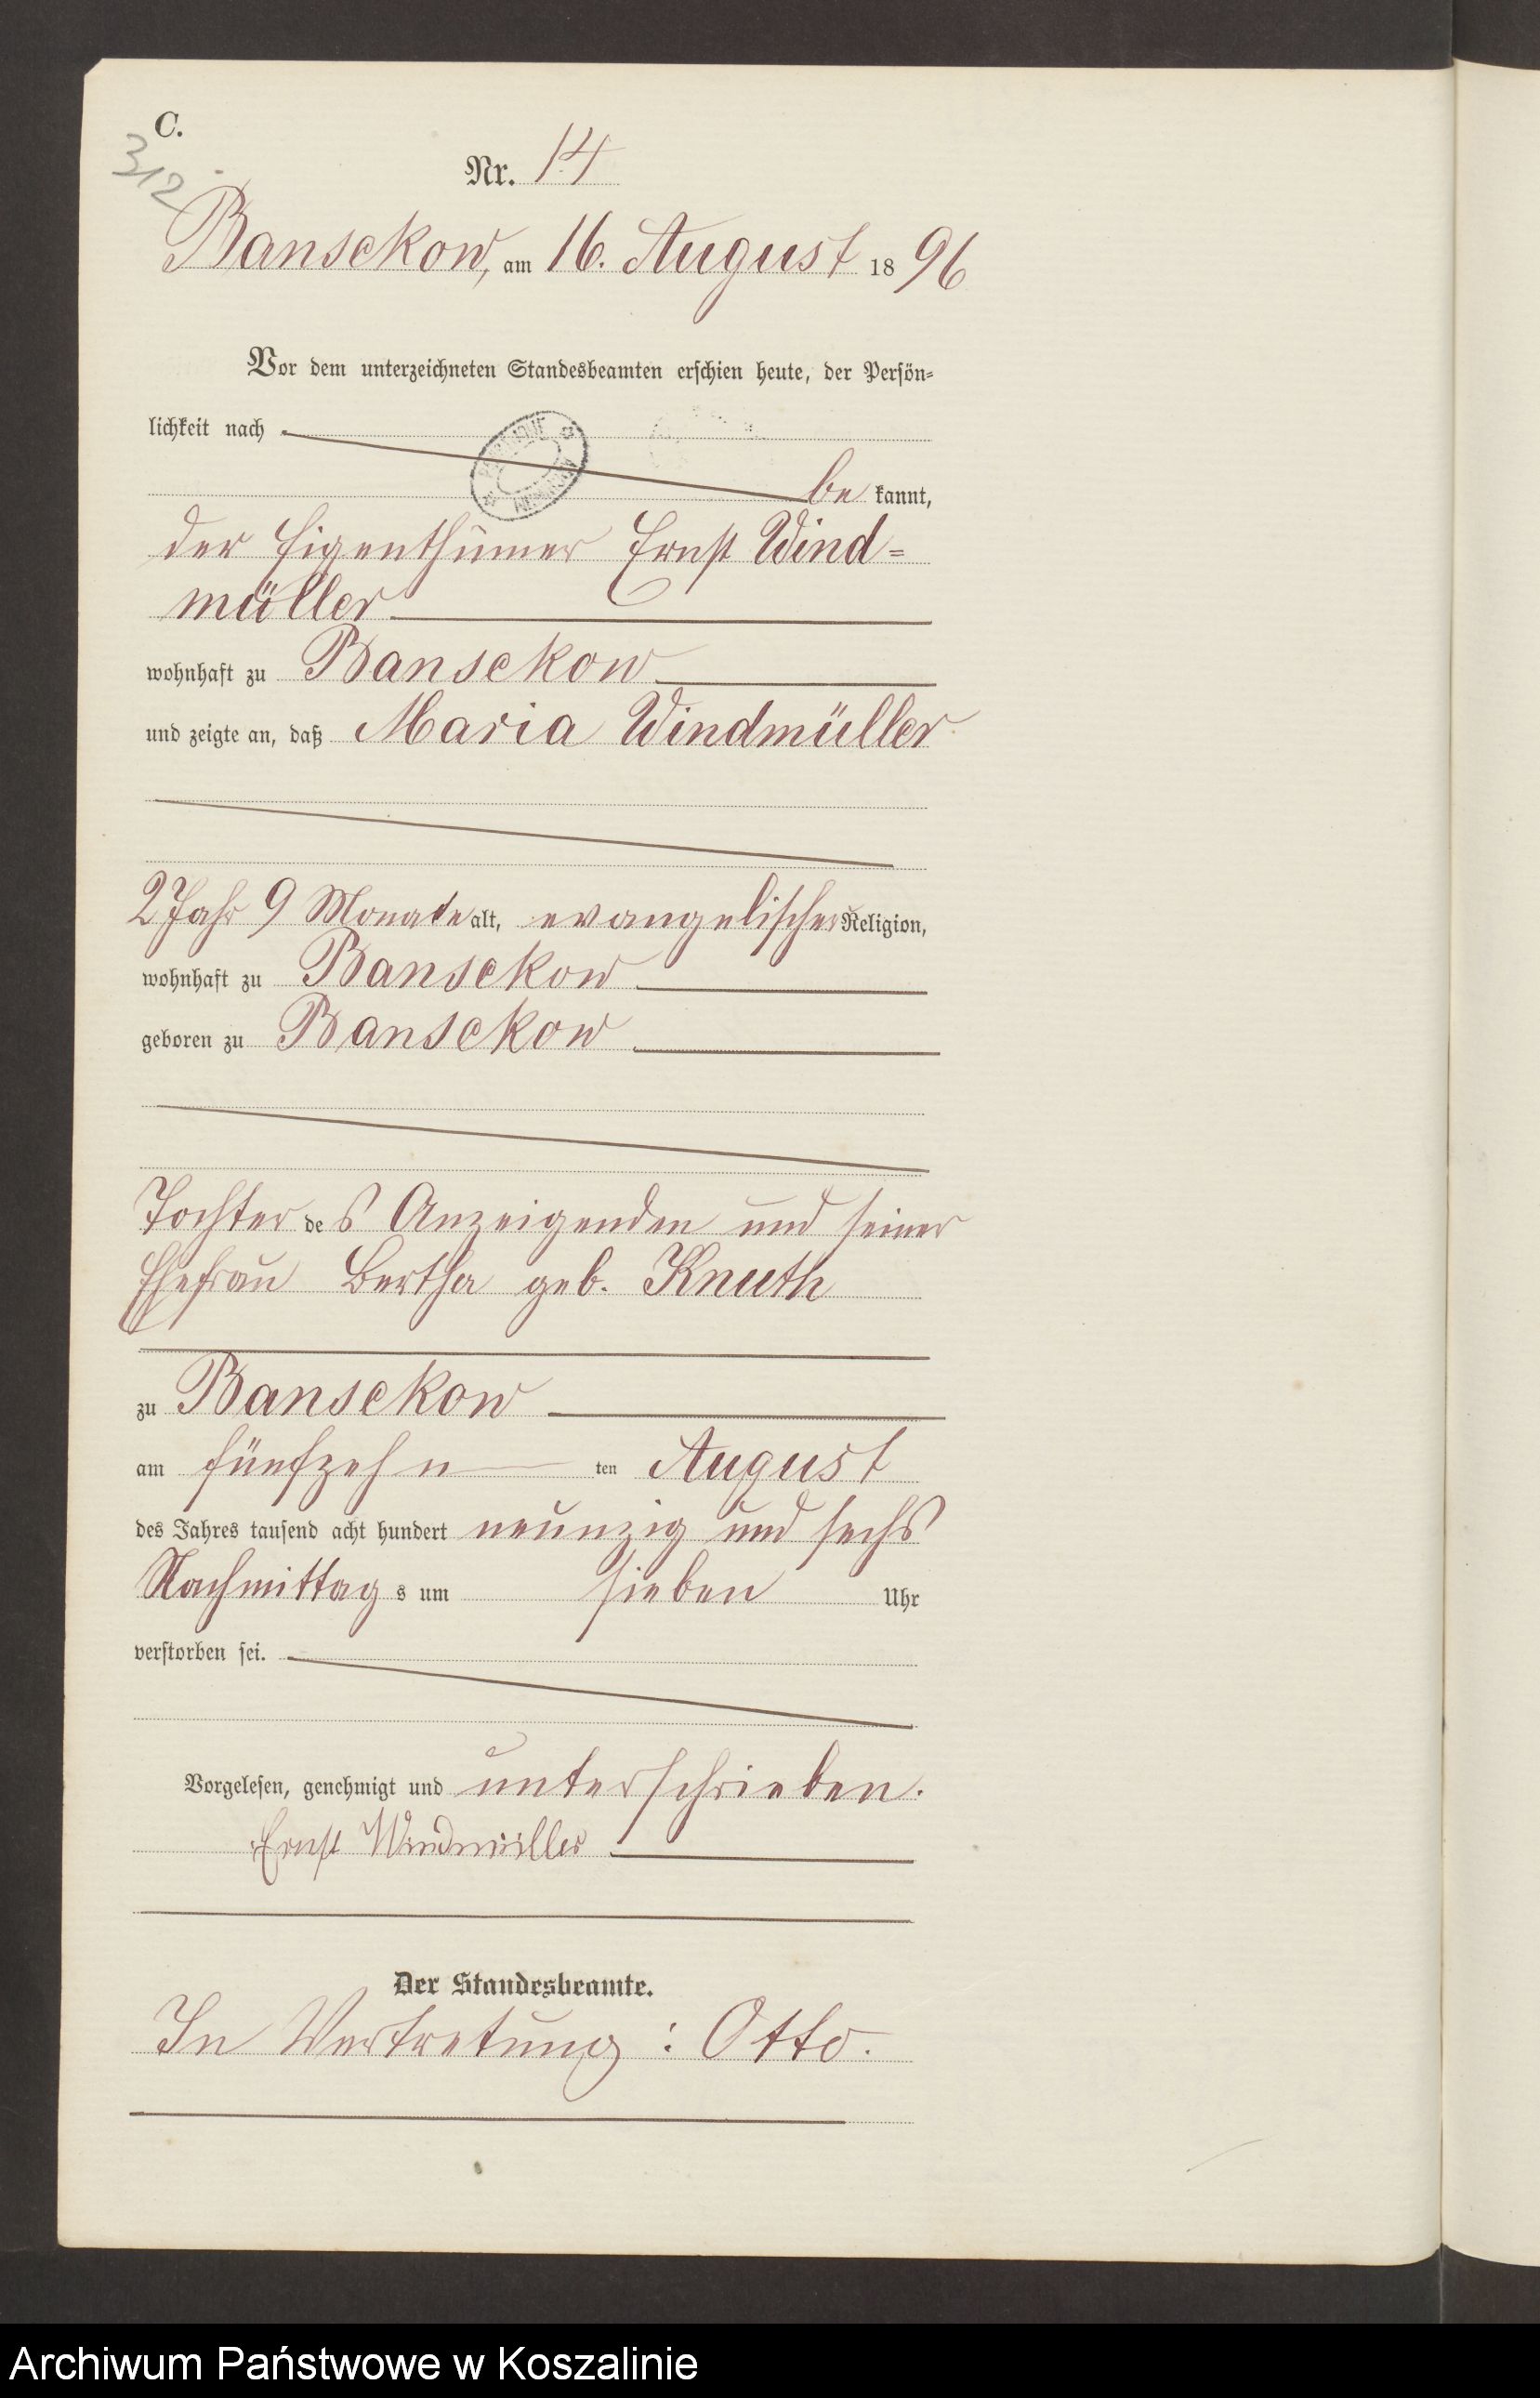 C.
312
Nr. 14
Bansekow, am 16. August 1896
Vor dem unterzeichneten Standesbeamten erschien heute, der Persön-
lichkeit nach
be kannt,
der Eigenthümer Ernst Wind-
müller
wohnhaft zu Bansekow
und zeigte an, daß Maria Windmüller
2 Jahr 9 Monate alt, evangelischer Religion,
wohnhaft zu Bansekow
geboren zu Bansekow
Tochter des Anzeigenden und seiner
Ehefrau Bertha geb. Knuth
zu Bansekow
am fünfzehn ten August
des Jahres tausend acht hundert neunzig und sechs
Nachmittag s um sieben Uhr
verstorben sei.
Vorgelesen, genehmigt und unterschrieben.
Ernst Windmüller
Der Standesbeamte.
In Vertretung: Otto.
Archiwum Państwowe w Koszalinie